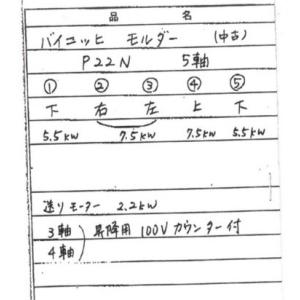 品 名
バイコッヒ モルダー (中古)
P22N 5軸
① ② ③ ④ ⑤
下 右 左 上 下
5.5kw 7.5kw 7.5kw 5.5kw
送リモーター 2.2kw
3軸 昇降用 100Vカウンター付
4軸